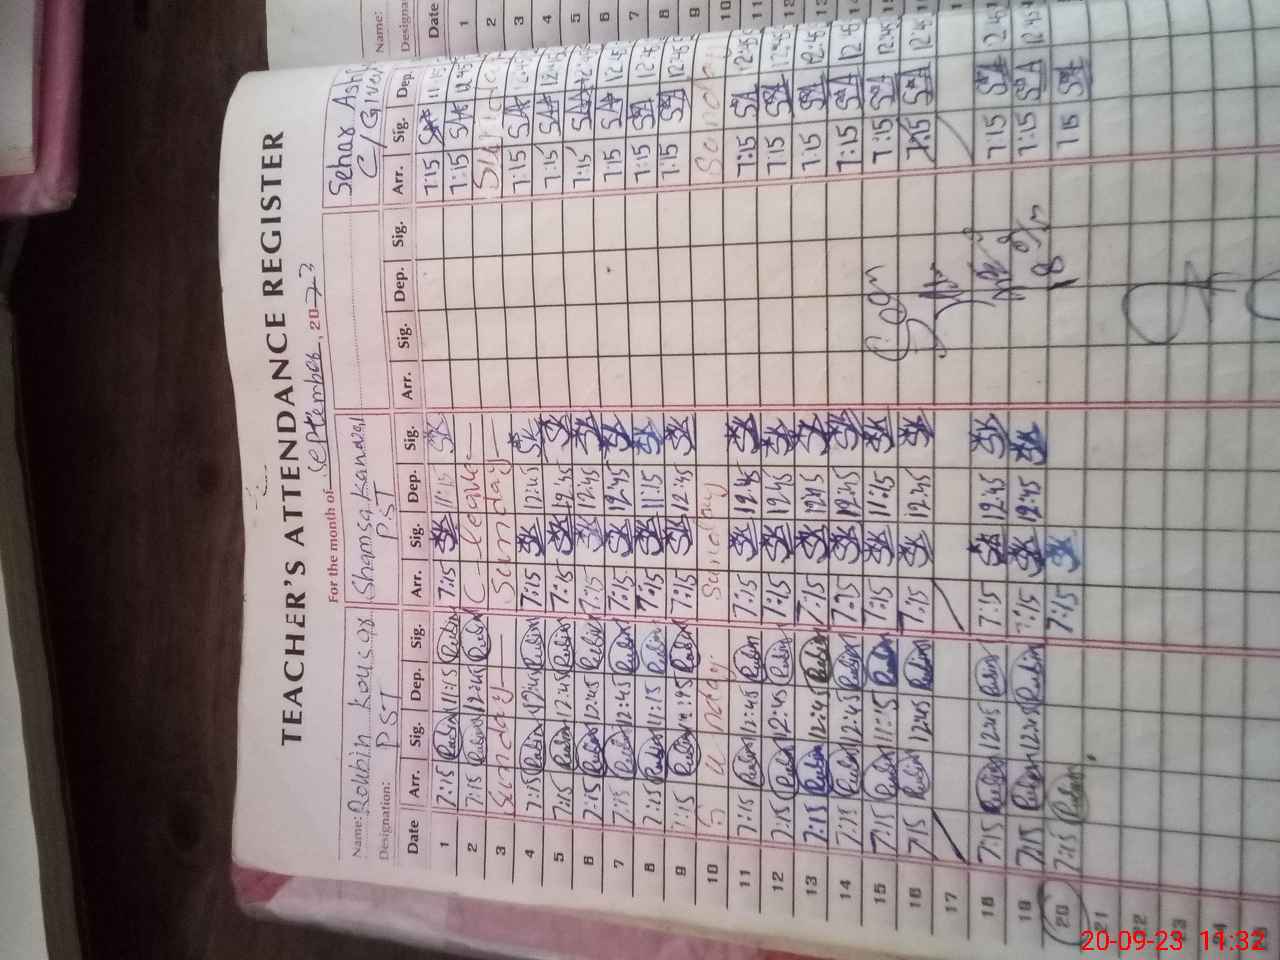 TEACHER'S ATTENDANCE REGISTER
For the month of September, 2023
Name: Roubin Kousar Shamsa Kanwal Sehar
Designation: PST PST C/Giver
Date Arr. Sig. Dep. Sig. Arr. Sig. Dep. Sig. Arr. Sig. Dep. Sig. Arr. Sig. Dep.
1 7:15 Rubin 11:15 Rubin 7:15 SK 11:15 SK 7:15 SA 11:15
2 7:15 Rubin 12:45 Rubin C-leave 7:15 SA 12:45
3 Sunday Sunday
4 7:15 Rubin 12:45 Rubin 7:15 SK 12:45 SK 7:15 SA 12:45
5 7:15 Rubin 12:45 Rubin 7:15 SK 12:45 SK 7:15 SA 12:45
6 7:15 Rubin 12:45 Rubin 7:15 SK 12:45 SK 7:15 SA 12:45
7 7:15 Rubin 12:45 Rubin 7:15 SK 12:45 SK 7:15 SA 12:45
8 7:15 Rubin 11:15 Rubin 7:15 SK 11:15 SK 7:15 SA 12:45
9 7:15 Rubin Rubin 7:15 SK 12:45 SK 7:15 SA 12:45
10 Sunday Sunday Sunday
11 7:15 Rubin 12:45 Rubin 7:15 SK 12:45 SK 7:15 SA 12:45
12 7:15 Rubin 12:45 Rubin 7:15 SK 12:45 SK 7:15 SA 12:45
13 7:15 Rubin 12:45 Rubin 7:15 SK 12:45 SK 7:15 SA 12:45
14 7:15 Rubin 12:45 Rubin 7:15 SK 12:45 SK 7:15 SA 12:45
15 7:15 Rubin 11:15 Rubin 7:15 SK 11:15 SK 7:15 SA 12:45
16 7:15 Rubin 12:45 Rubin 7:15 SK 12:45 SK 7:15 SA 12:45
17
18 7:15 Rubin 12:45 Rubin 7:15 SK 12:45 SK 7:15 SA 2:45
19 7:15 Rubin 12:45 Rubin 7:15 SK 12:45 SK 7:15 SA 12:45
20 7:15 Rubin 7:15 SK 7:15 SA
21
22
23
24
Name:
Date
1
2
3
4
5
6
7
8
9
10
11
12
13
14
20-09-23 11:32